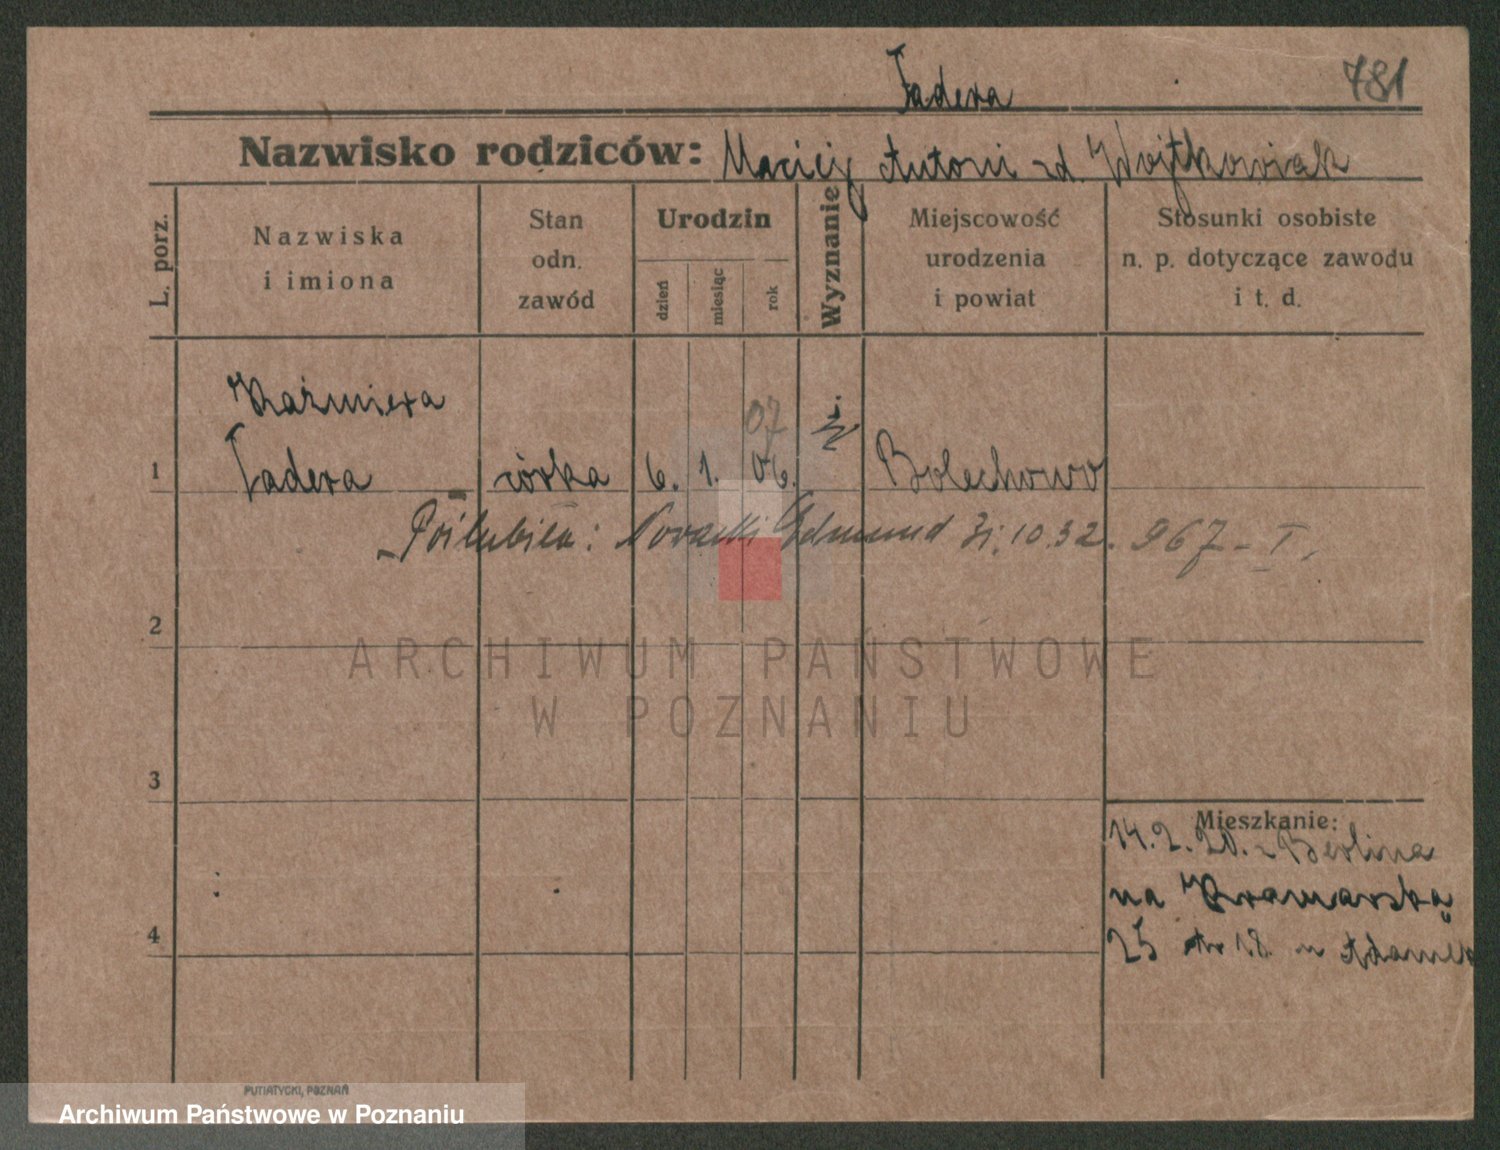 Jadera
781
Nazwisko rodziców: Maciej Antoni zd. Wojtkowiak
L. porz.
Nazwiska
i imiona
Stan
odn.
zawód
Urodzin
dzień
miesiąc
rok
Wyznanie
Miejscowość
urodzenia
i powiat
Stosunki osobiste
n. p. dotyczące zawodu
i t. d.
Kaźmiera
07
1 Jadera córka 6. 1. 06. Bolechowo
Poślubiła: Nowacki Edmund 31.10.32. 967-I.
2
ARCHIWUM PAŃSTWOWE
W POZNANIU
3
Mieszkanie:
14.2.20. z Berlina
na Kramarską
25 18. u Adamek
4
PUTIATYCKI, POZNAŃ
Archiwum Państwowe w Poznaniu